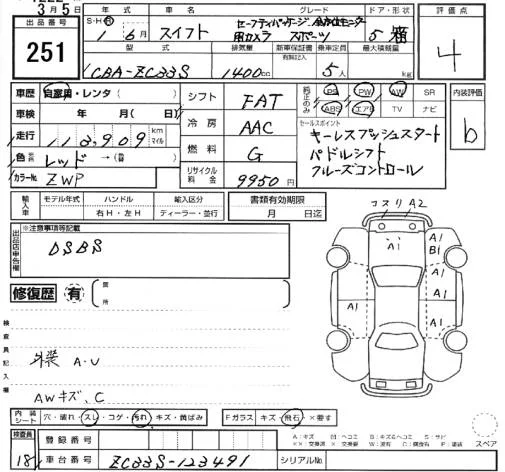 3月5日
出品番号
251
年式 車名 グレード ドア・形状 評価点
S・H 1年6月 スイフト セーフティパッケージ、全方位モニター
用カメラ スポーツ 5 箱
4
型式 排気量 新車保証書 乗車定員 最大積載量
有無記入
CBA-ZC33S 1400cc 5人 kg
車歴 自家用・レンタ( )
車検 年 月( 日)
走行 118,909 km マイル
色 レッド → (替)
カラーNo. ZWP
シフト FAT
冷房 AAC
燃料 G
リサイクル料金 9950円
純正のみ PS PW AW SR
ABS エアB TV ナビ
セールスポイント
キーレスプッシュスタート
パドルシフト
クルーズコントロール
内装評価
b
輸入車 モデル年式 ハンドル 輸入区分
右H・左H ディーラー・並行
書類有効期限
月 日迄
出品店申告欄
※注意事項等記載
DSBS
修復歴 有 箇所
検査員記入欄
外装 A・U
AWキズ、C
コスリA2
A1
A1
B1
A1
A1
A1
内装シート 穴・破れ・スレ・コゲ・汚れ・キズ・黄ばみ
Fガラス キズ・飛石・×要す
検査員
18
登録番号
車台番号 ZC33S-123491
シリアルNo.
A:キズ B:キズ&ヘコミ S:サビ
スペア